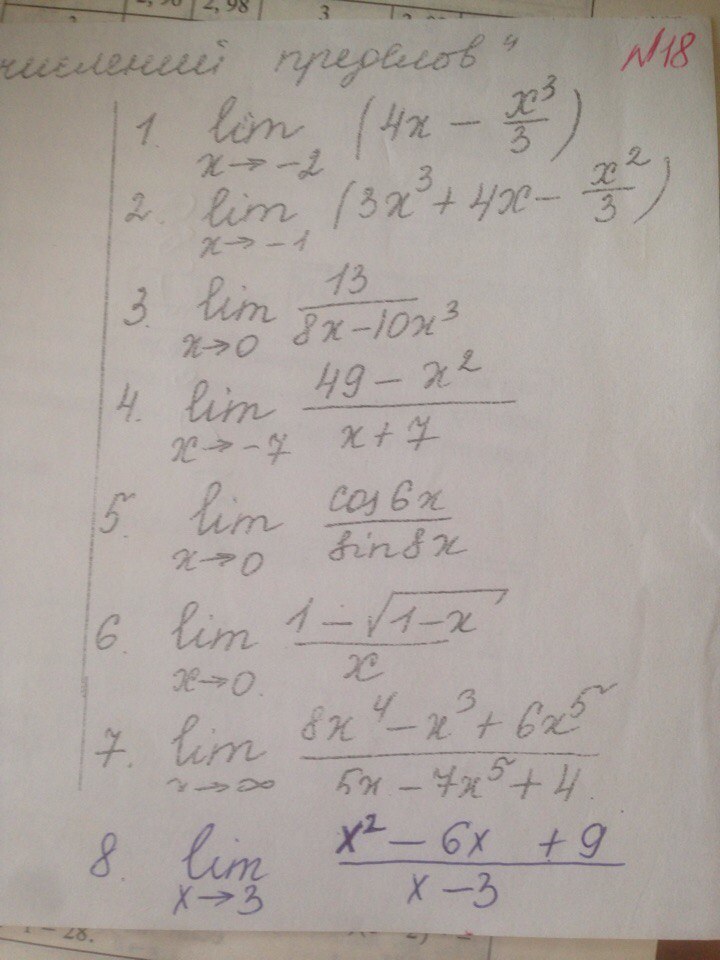 2,98 2,98 3
числений пределов"
№18
1. lim x→-2 (4x - x³/3)
2. lim x→-1 (3x³ + 4x - x²/3)
3. lim x→0 13/(8x-10x³)
4. lim x→-7 (49 - x²)/(x+7)
5. lim x→0 cos6x/sin8x
6. lim x→0. (1-√(1-x))/x
7. lim x→∞ (8x⁴-x³+6x⁵)/(5x-7x⁵+4)
8. lim x→3 (x²-6x+9)/(x-3)